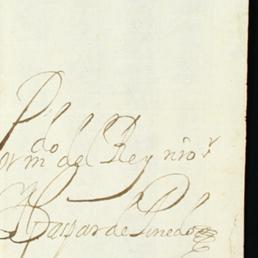 Por m.do del Rey nro s.r
Gaspar de Pinedo